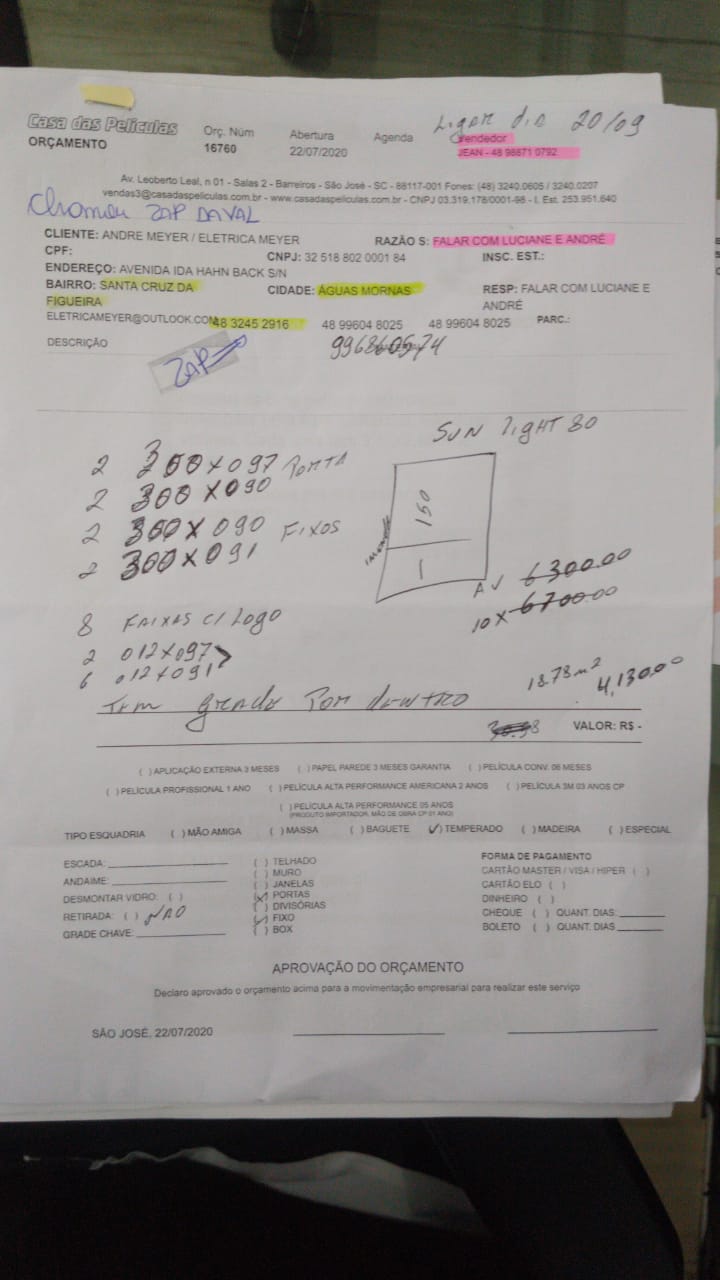 Ligar dia 20/09
Casa das Películas
ORÇAMENTO
Orç. Núm
16760
Abertura
22/07/2020
Agenda
Vendedor
JEAN - 48 98871 0792
Av. Leoberto Leal, n 01 - Salas 2 - Barreiros - São José - SC - 88117-001 Fones: (48) 3240.0605 / 3240.0207
vendas3@casadaspeliculas.com.br - www.casadaspeliculas.com.br - CNPJ 03.319.178/0001-98 - I. Est. 253.951.640
Chamou ZAP DAVAL
CLIENTE: ANDRE MEYER / ELETRICA MEYER RAZÃO S: FALAR COM LUCIANE E ANDRÉ
CPF: CNPJ: 32 518 802 0001 84 INSC. EST.:
ENDEREÇO: AVENIDA IDA HAHN BACK S/N
BAIRRO: SANTA CRUZ DA FIGUEIRA CIDADE: ÁGUAS MORNAS RESP: FALAR COM LUCIANE E ANDRÉ
ELETRICAMEYER@OUTLOOK.COM 48 3245 2916 48 99604 8025 48 99604 8025 PARC.:
DESCRIÇÃO
ZAP
SUN light 80
2 300 x 097 PORTA
2 300 x 090
2 300 x 090 FIXOS
2 300 x 091
150
1
AV 6300.00
10 x 6700.00
8 FAIXAS C/ Logo
2 012 x 097
6 012 x 091
18.78 m² 4,130.00
Tem grade Por dentro
VALOR: R$ -
( ) APLICAÇÃO EXTERNA 3 MESES ( ) PAPEL PAREDE 3 MESES GARANTIA ( ) PELÍCULA CONV. 06 MESES
( ) PELÍCULA PROFISSIONAL 1 ANO ( ) PELÍCULA ALTA PERFORMANCE AMERICANA 2 ANOS ( ) PELÍCULA 3M 03 ANOS CP
( ) PELÍCULA ALTA PERFORMANCE 05 ANOS
(PRODUTO IMPORTADOR, MÃO DE OBRA CP 01 ANO)
TIPO ESQUADRIA ( ) MÃO AMIGA ( ) MASSA ( ) BAGUETE (✓) TEMPERADO ( ) MADEIRA ( ) ESPECIAL
ESCADA:
ANDAIME:
DESMONTAR VIDRO: ( )
RETIRADA: ( ) NÃO
GRADE CHAVE:
( ) TELHADO
( ) MURO
( ) JANELAS
(x) PORTAS
( ) DIVISÓRIAS
(✓) FIXO
( ) BOX
FORMA DE PAGAMENTO
CARTÃO MASTER / VISA / HIPER ( )
CARTÃO ELO ( )
DINHEIRO ( )
CHEQUE ( ) QUANT. DIAS:
BOLETO ( ) QUANT. DIAS
APROVAÇÃO DO ORÇAMENTO
Declaro aprovado o orçamento acima para a movimentação empresarial para realizar este serviço
SÃO JOSÉ, 22/07/2020